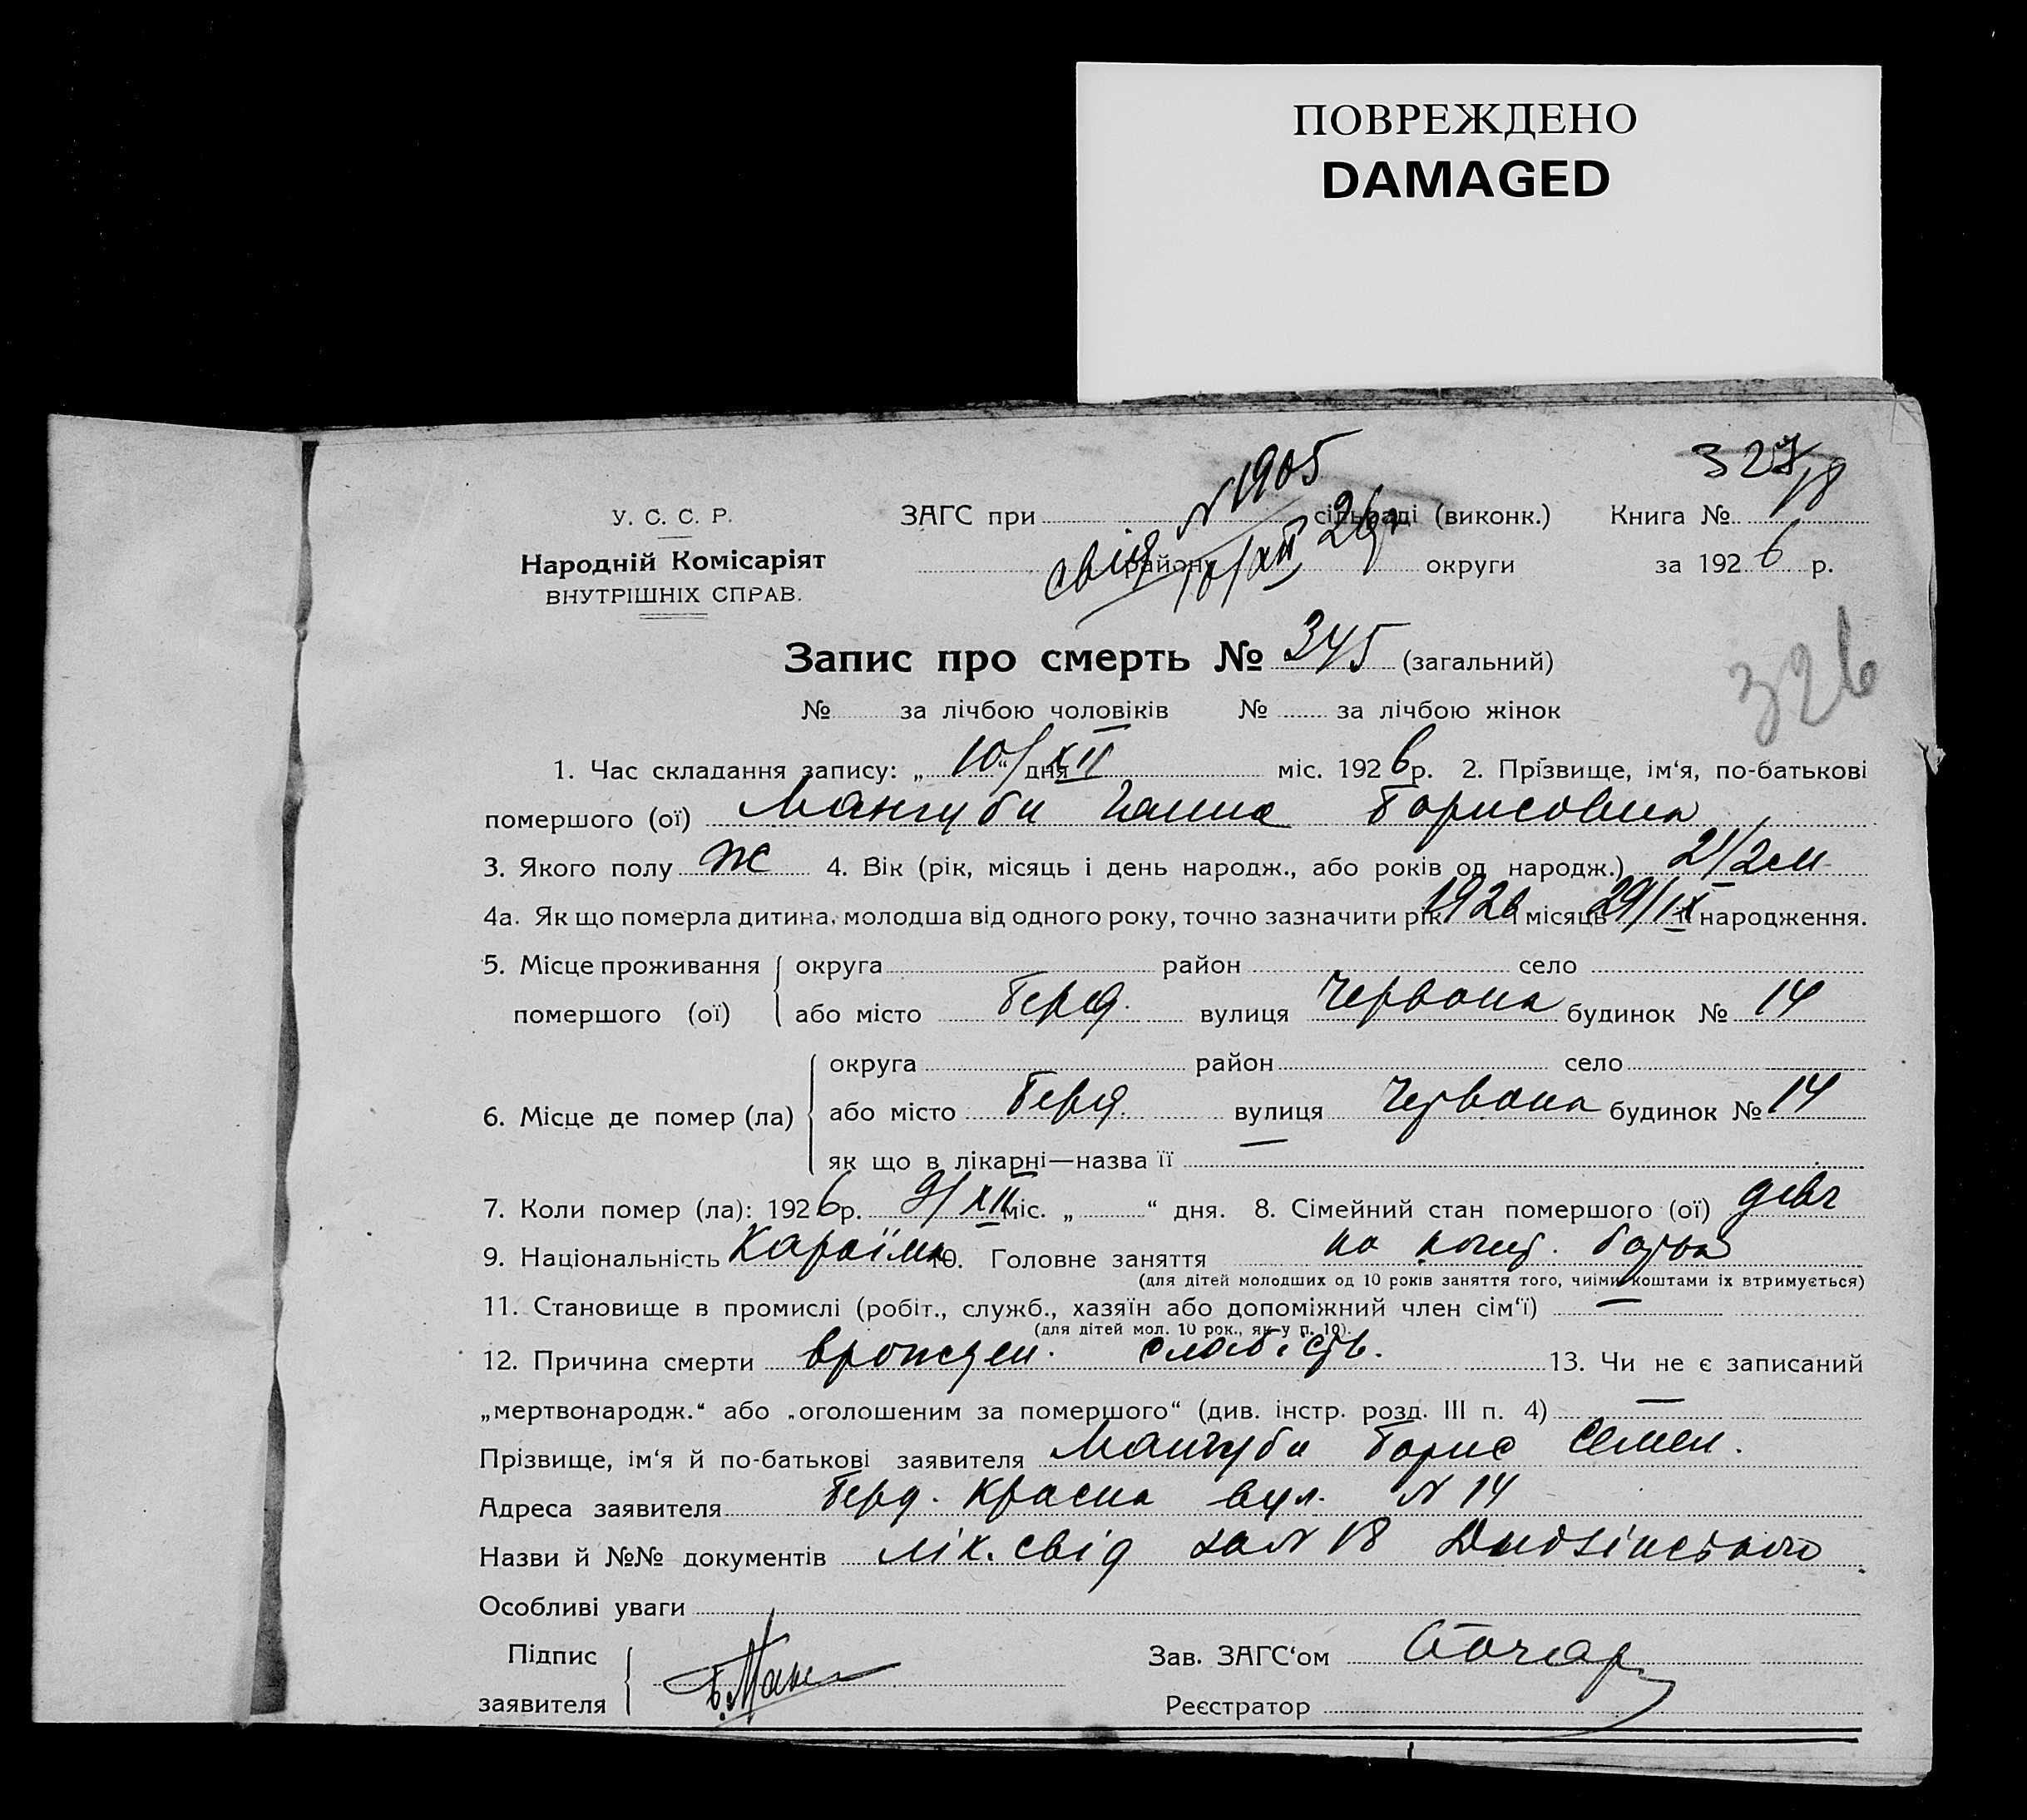 ПОВРЕЖДЕНО
DAMAGED
327/8
N 1905
У. С. С. Р.
ЗАГС при сільраді (виконк.) Книга №
Народній Комісаріят
ВНУТРІШНІХ СПРАВ.
свід 10/XII 26 р
район округи за 1926 р.
Запис про смерть № 345 (загальний)
326
№ за лічбою чоловіків № за лічбою жінок
1. Час складання запису: „10/XII“ дня міс. 1926 р. 2. Прізвище, ім‘я, по-батькові
помершого (ої) Мангуби Ганна Борисовна
3. Якого полу ж 4. Вік (рік, місяць і день народж., або років од народж.) 2 1/2 м
4а. Як що померла дитина, молодша від одного року, точно зазначити рік 1926 і місяць 29/IX народження.
5. Місце проживання округа район село
помершого (ої) або місто Берд. вулиця Червона будинок № 14
округа район село
6. Місце де помер (ла) або місто Берд. вулиця Червона будинок № 14
як що в лікарні—назва її —
7. Коли помер (ла): 1926 р. 9/XII міс. „ “ дня. 8. Сімейний стан помершого (ої) девч
9. Національність Караїмка 10. Головне заняття на батька
(для дітей молодших од 10 років заняття того, чиїми коштами їх втримується)
11. Становище в промислі (робіт., служб., хазяїн або допоміжний член сім‘ї) —
(для дітей мол. 10 рок., як у п. 10).
12. Причина смерти врожден. слабість. 13. Чи не є записаний
„мертвонародж.“ або „оголошеним за помершого“ (див. інстр. розд. III п. 4) —
Прізвище, ім‘я й по-батькові заявителя Мангуби Борис Семен.
Адреса заявителя Берд. Красна вул. N 14
Назви й №№ документів лік. свід за N 18
Особливі уваги
Підпис
заявителя Б. Манг
Зав. ЗАГС‘ом
Реєстратор